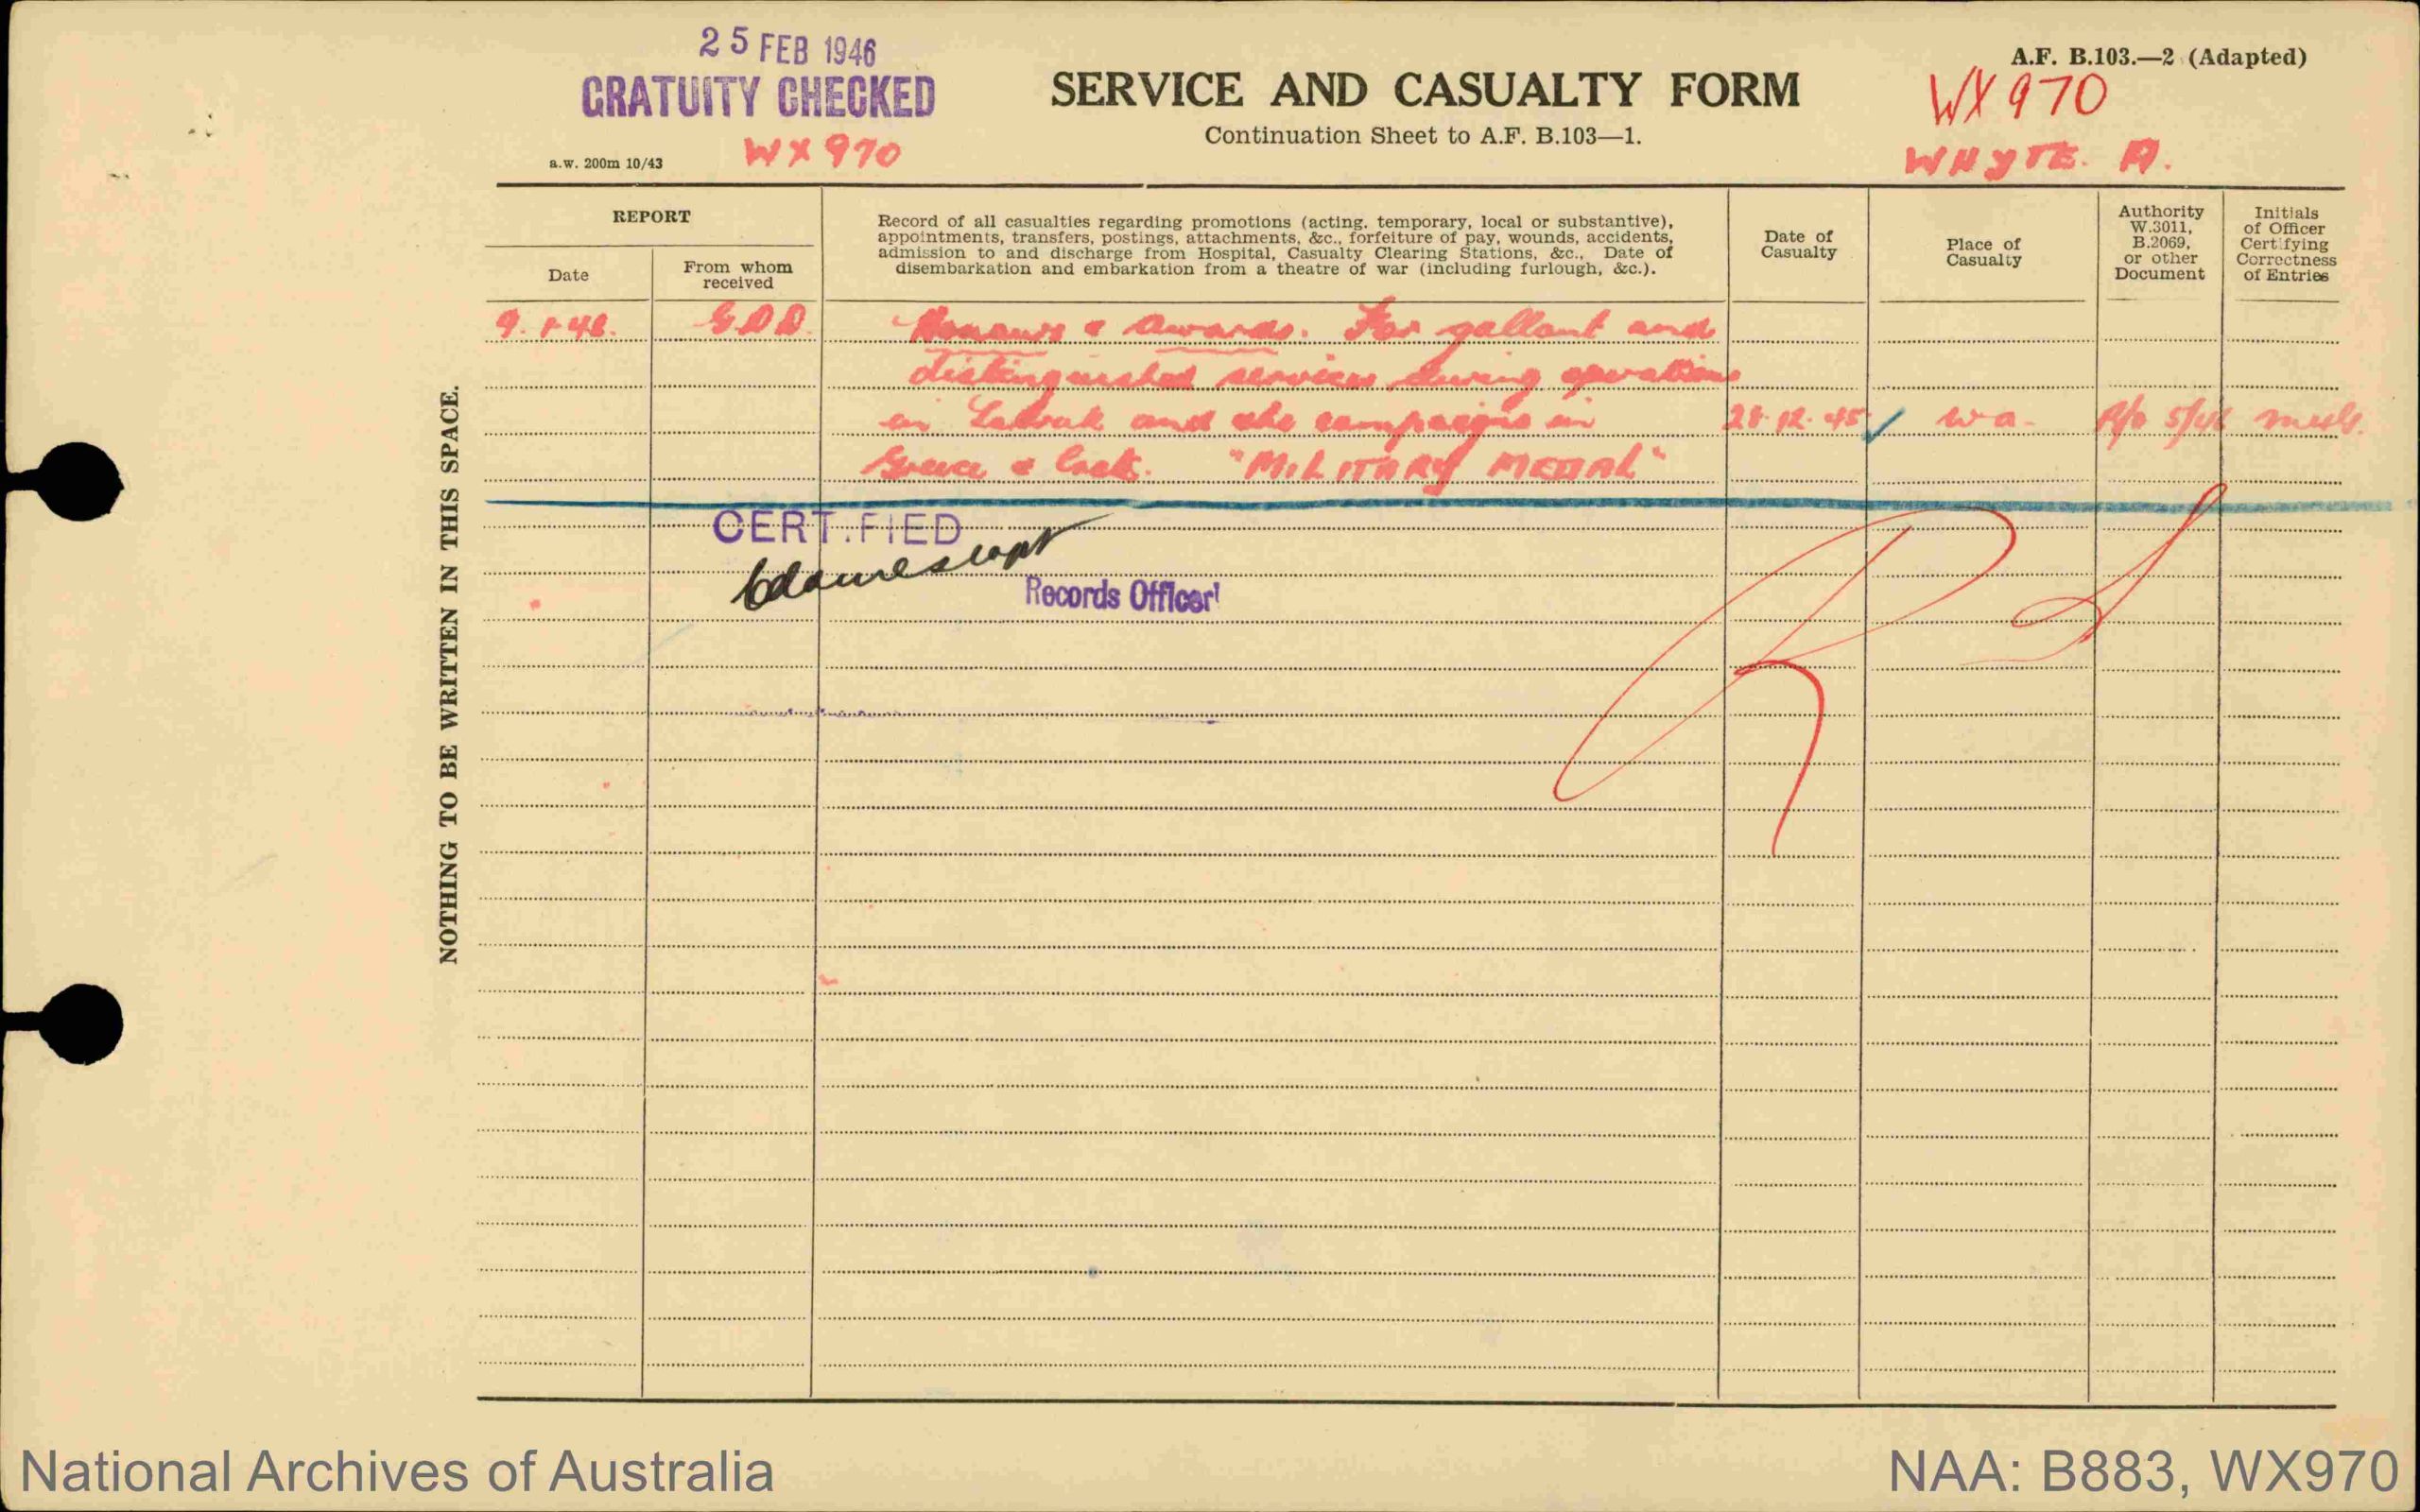 25 FEB 1946
GRATUITY CHECKED
WX970
a.w. 200m 10/43
SERVICE AND CASUALTY FORM
Continuation Sheet to A.F. B.103—1.
A.F. B.103.—2 (Adapted)
WX970
WHYTE. A.
NOTHING TO BE WRITTEN IN THIS SPACE.
REPORT
Date
From whom
received
Record of all casualties regarding promotions (acting, temporary, local or substantive),
appointments, transfers, postings, attachments, &c., forfeiture of pay, wounds, accidents,
admission to and discharge from Hospital, Casualty Clearing Stations, &c., Date of
disembarkation and embarkation from a theatre of war (including furlough, &c.).
Date of
Casualty
Place of
Casualty
Authority
W.3011,
B.2069,
or other
Document
Initials
of Officer
Certifying
Correctness
of Entries
9.1.46. Honours & Awards. For gallant and
distinguished services during operations
in and the campaigns in 12.45 WA. 5/46
Greece & "MILITARY MEDAL"
CERT.FIED
Records Officer
National Archives of Australia
NAA: B883, WX970